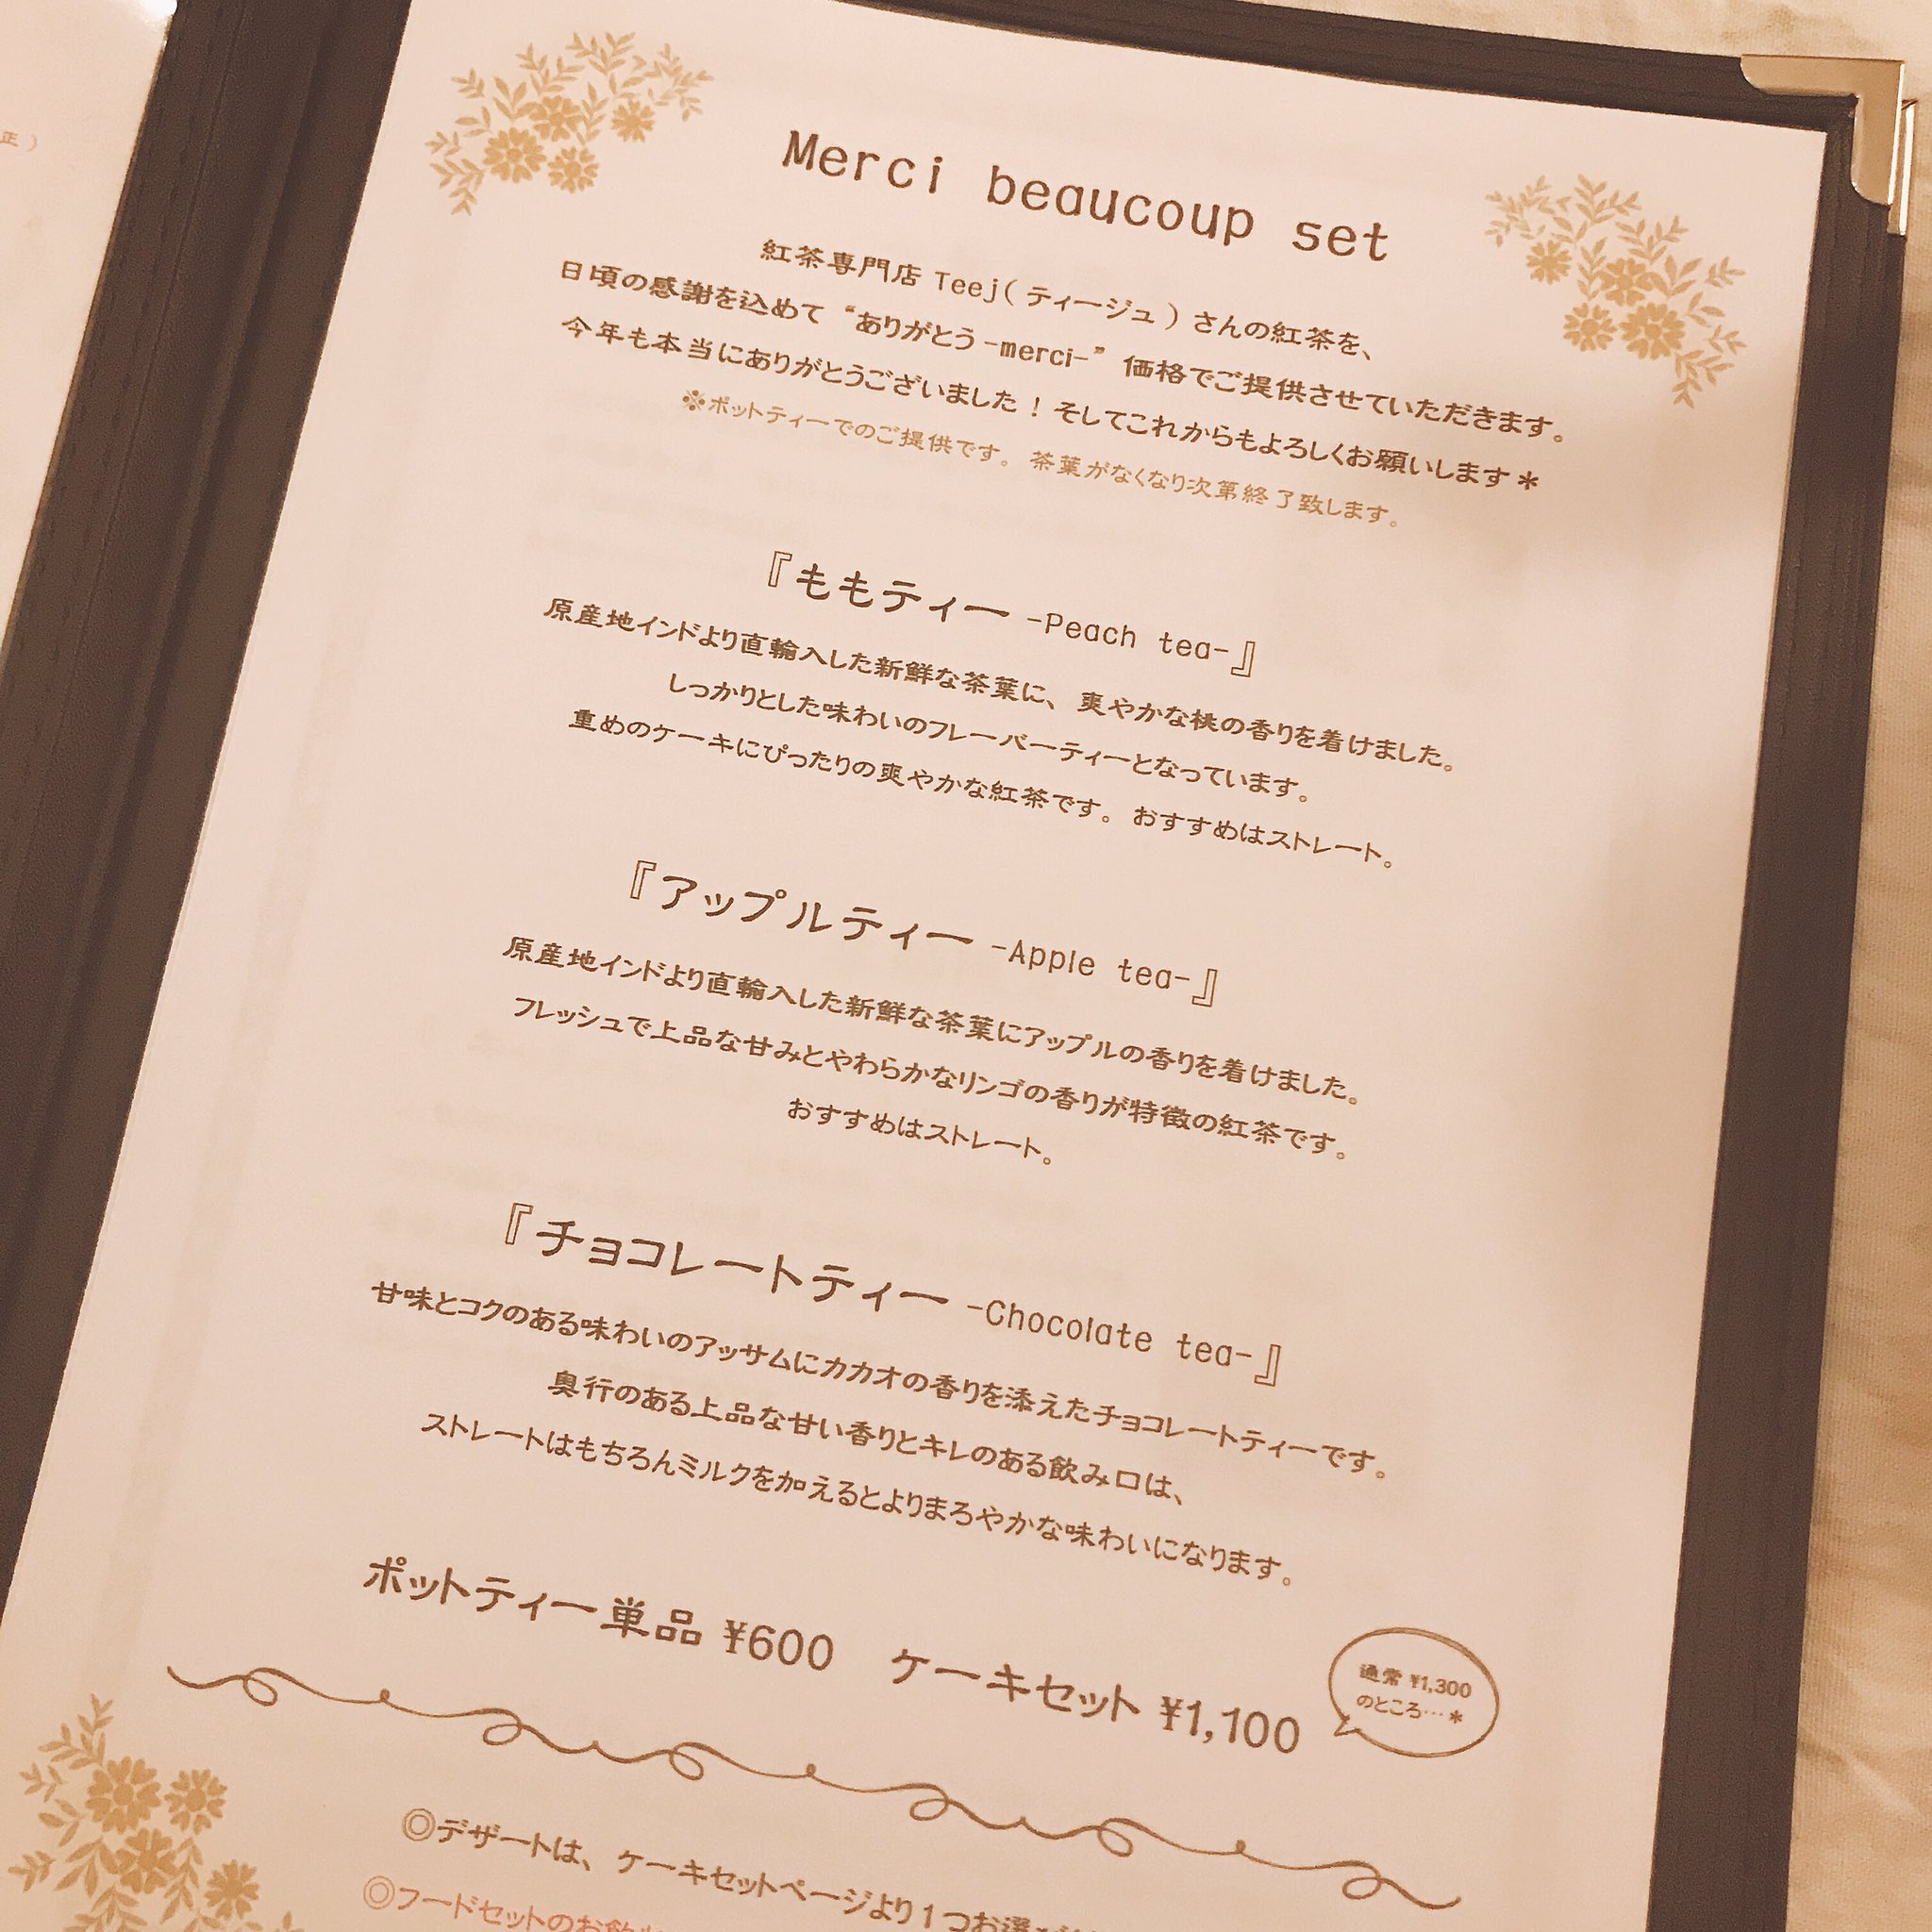 正）
Merci beaucoup set
紅茶専門店 Teej( ティージュ ) さんの紅茶を、
日頃の感謝を込めて “ありがとう -merci-” 価格でご提供させていただきます。
今年も本当にありがとうございました！そしてこれからもよろしくお願いします＊
※ポットティーでのご提供です。茶葉がなくなり次第終了致します。
『ももティー -Peach tea-』
原産地インドより直輸入した新鮮な茶葉に、爽やかな桃の香りを着けました。
しっかりとした味わいのフレーバーティーとなっています。
重めのケーキにぴったりの爽やかな紅茶です。おすすめはストレート。
『アップルティー -Apple tea-』
原産地インドより直輸入した新鮮な茶葉にアップルの香りを着けました。
フレッシュで上品な甘みとやわらかなリンゴの香りが特徴の紅茶です。
おすすめはストレート。
『チョコレートティー -Chocolate tea-』
甘味とコクのある味わいのアッサムにカカオの香りを添えたチョコレートティーです。
奥行のある上品な甘い香りとキレのある飲み口は、
ストレートはもちろんミルクを加えるとよりまろやかな味わいになります。
ポットティー単品 ¥600 ケーキセット ¥1,100
通常 ¥1,300
のところ…＊
◎デザートは、ケーキセットページより1つお選
◎フードセットのお飲